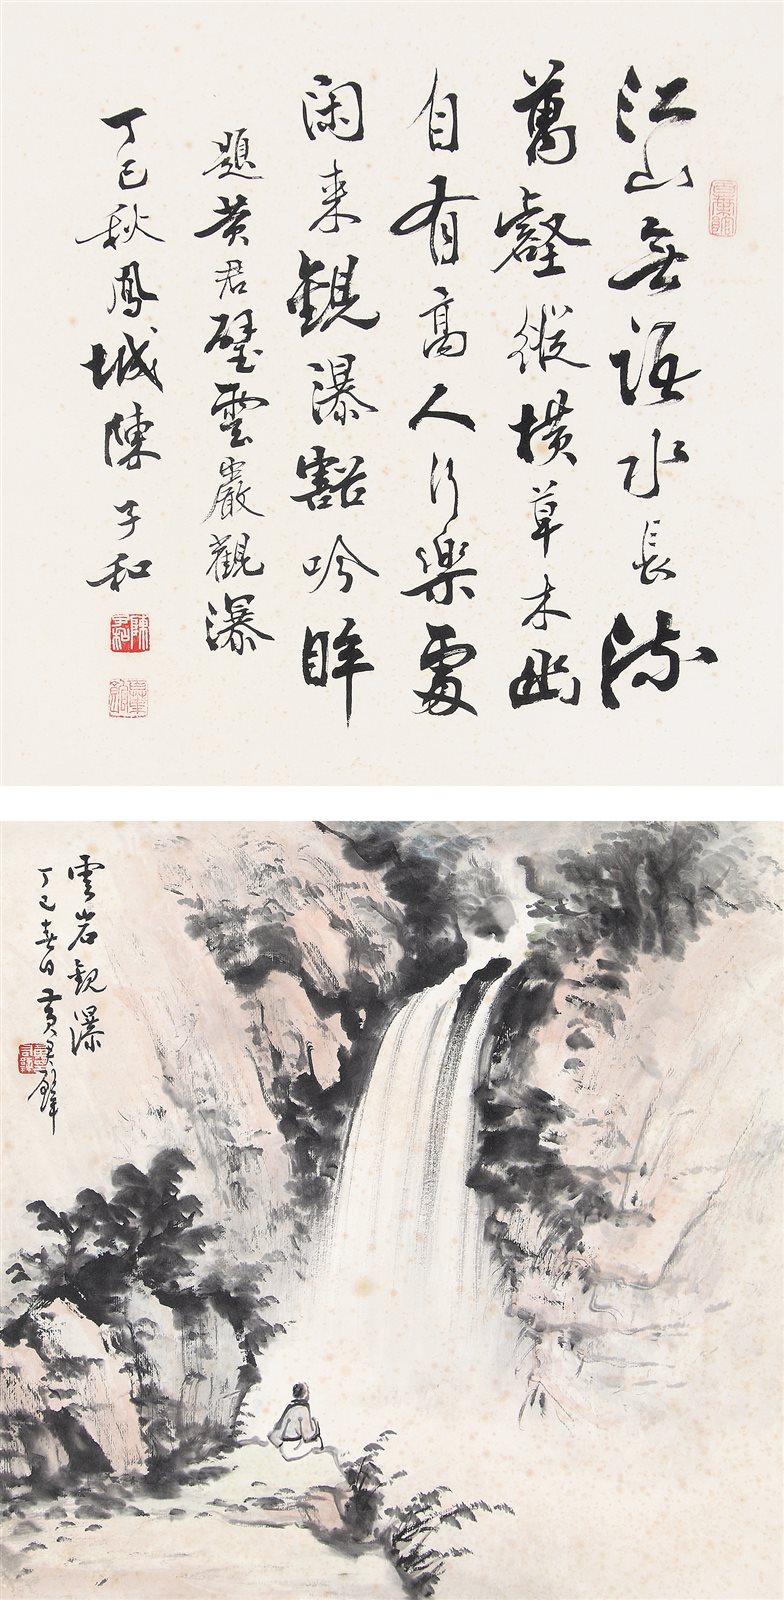 江山無語水長流
萬壑縱橫草木幽
自有高人行樂處
闲来觀瀑豁吟眸
題黄君璧雲巖觀瀑
丁巳秋鳳城陳子和
雲岩觀瀑
丁巳春日黄君璧